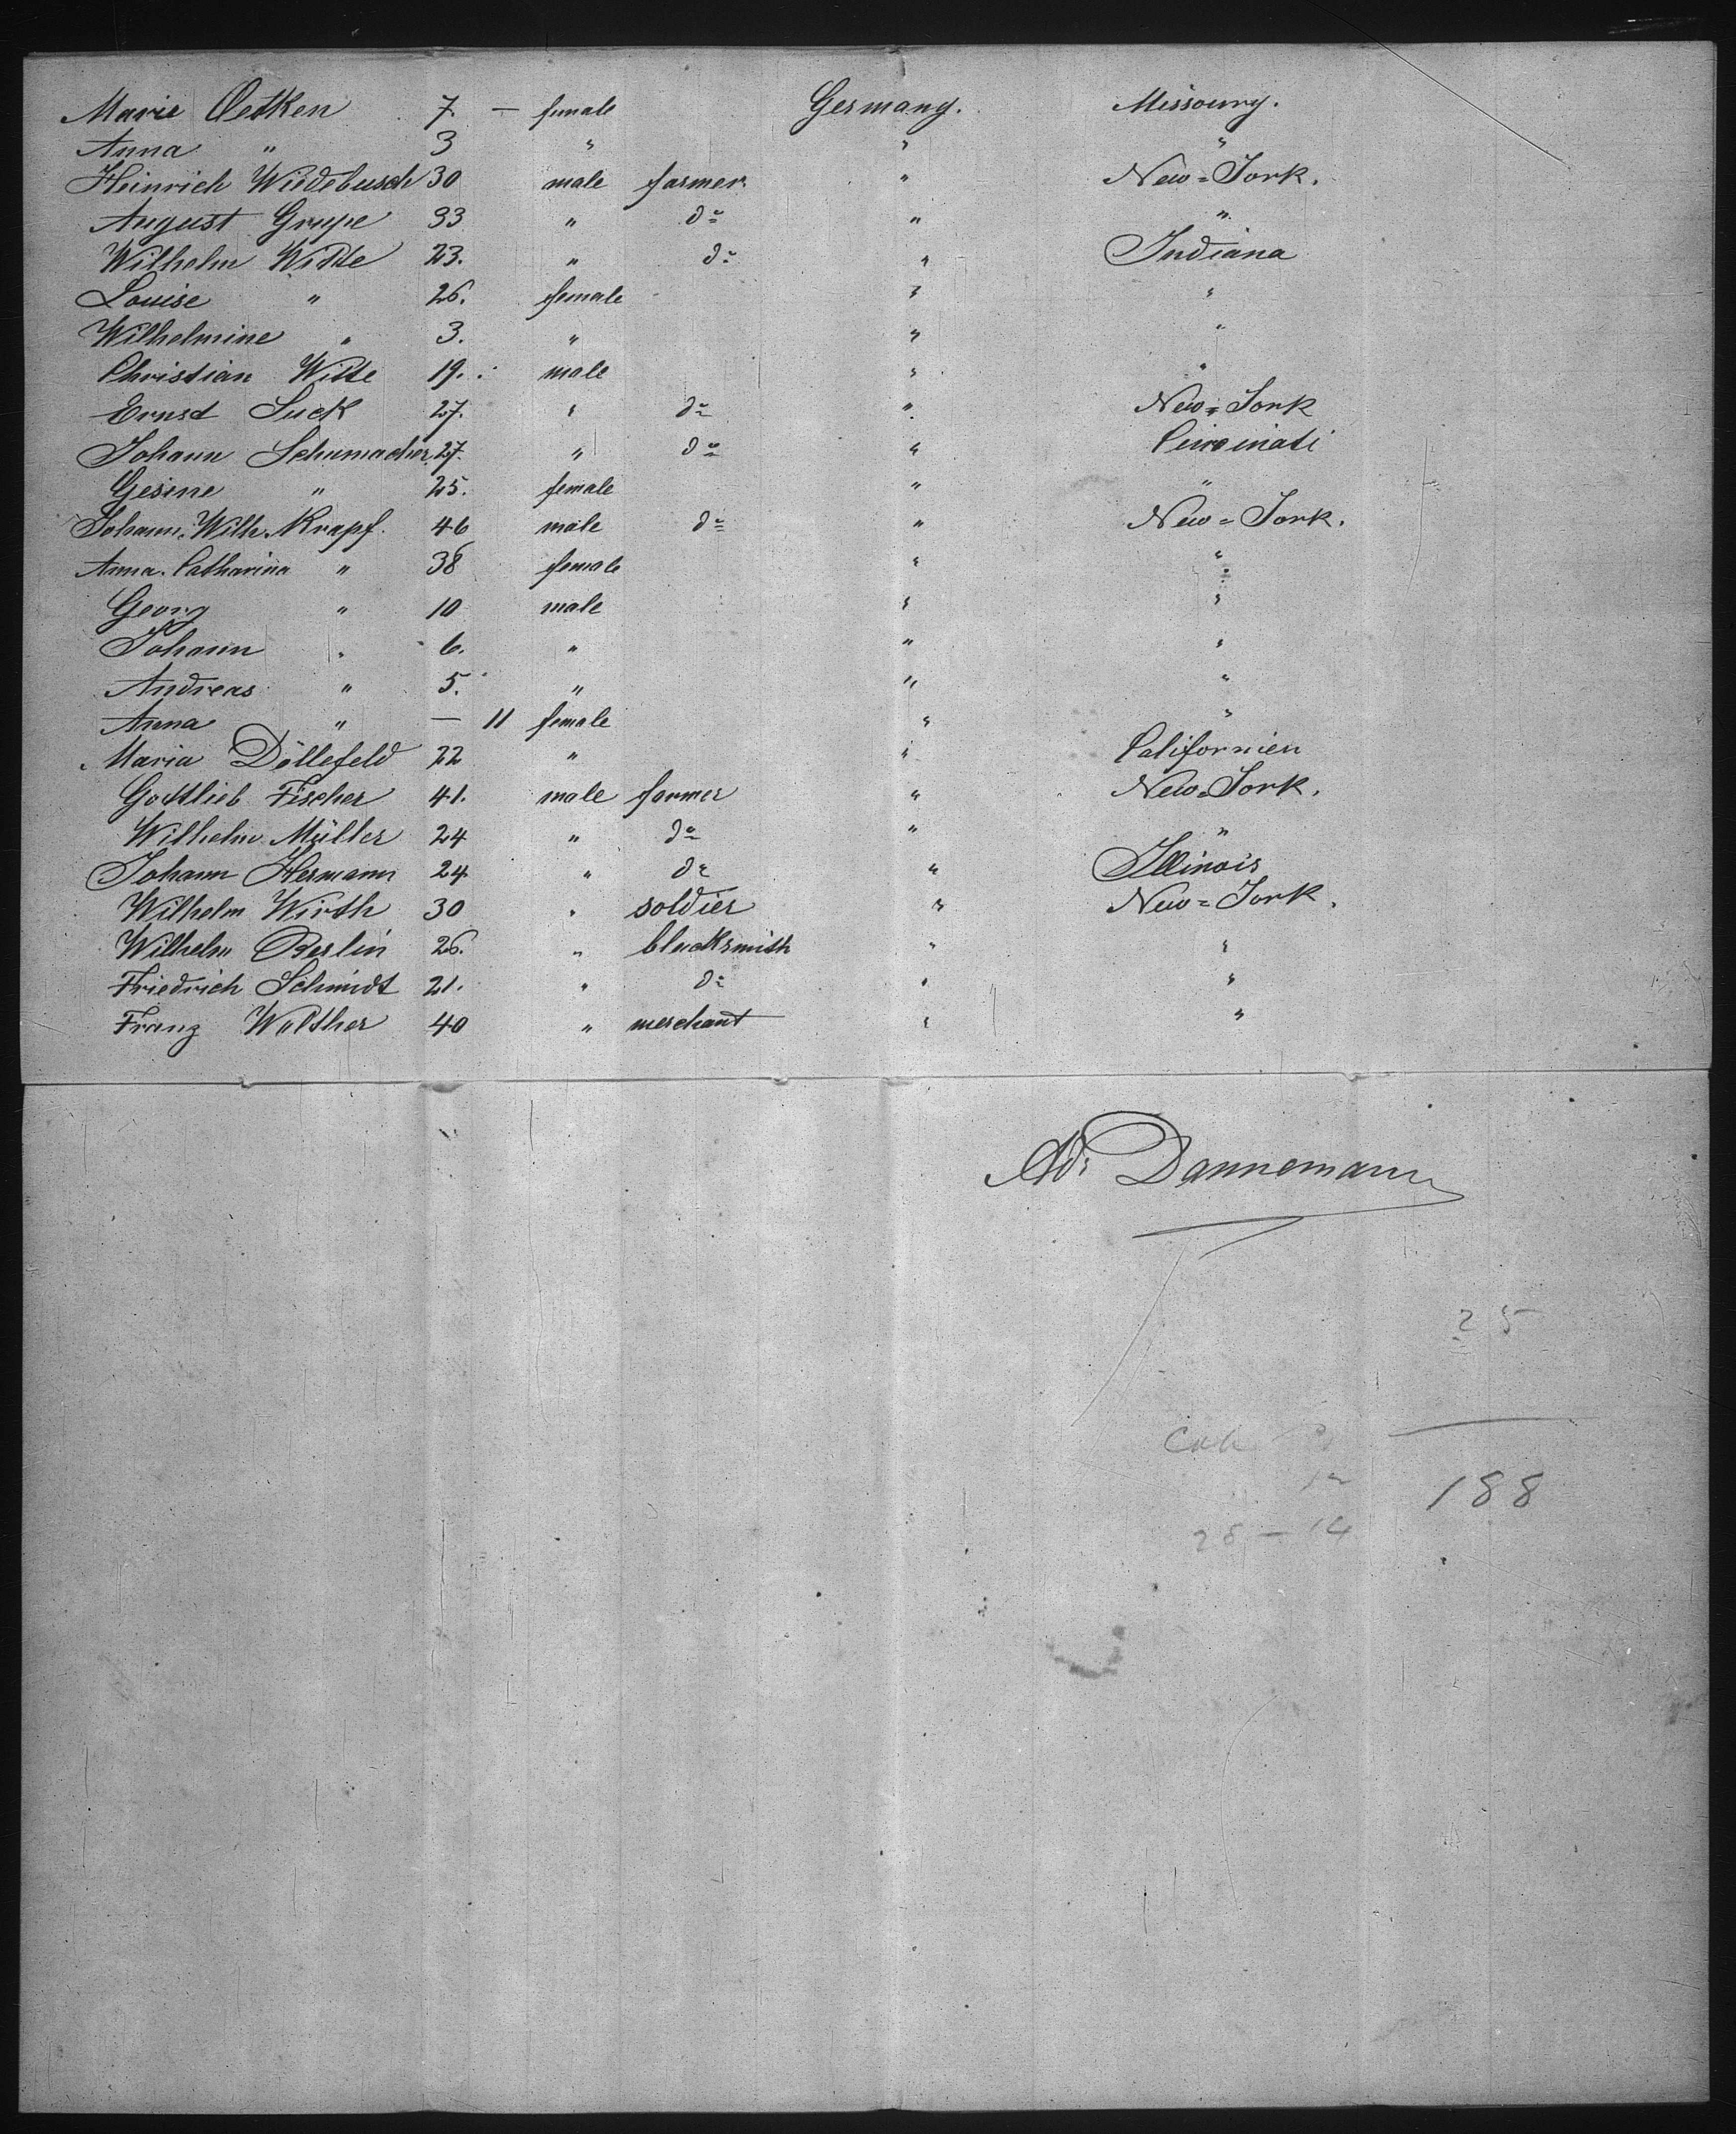 Marie Oetken 7. — female Germany. Missoury.
Anna " 3 " " "
Heinrich Wiedebusch 30 male farmer " New=York.
August Grupe 33 " do " "
Wilhelm Witte 23. " do " Indiana
Louise " 26. female " "
Wilhelmine " 3. " " "
Christian Witte 19. male " "
Ernst Suck 27. " do " New=York
Johann Schumacher 27. " do " Cincinati
Gesine " 25. female " "
Johann Wilh. Krapf. 46 male do " New=York.
Anna Catharina " 38 female " "
Georg " 10 male " "
Johann " 6. " " "
Andreas " 5. " " "
Anna " — 11 female " "
Maria Döllefeld 22 " " Californien
Gottlieb Fischer 41. male farmer " New=York.
Wilhelm Müller 24 " do " "
Johann Hermann 24 " do " Illinois
Wilhelm Wirth 30 " soldier " New=York.
Wilhelm Berlin 26. " blacksmith " "
Friedrich Schmidt 21. " do " "
Franz Walther 40 " merchant " "
Ad. Dannemann
25
188
28 — 14